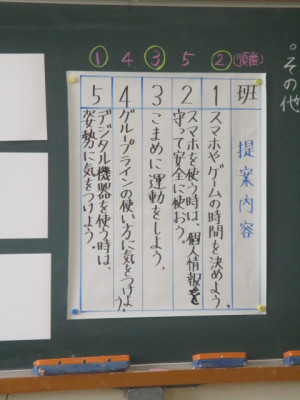 ① 4 ③ 5 ② (順番)
。その他
班 提案内容
1 スマホやゲームの時間を決めよう。
2 スマホを使う時は、個人情報を
守って安全に使おう。
3 こまめに運動をしよう。
4 グループラインの使い方に気をつけよう。
5 デジタル機器を使う時は、
姿勢に気をつけよう。